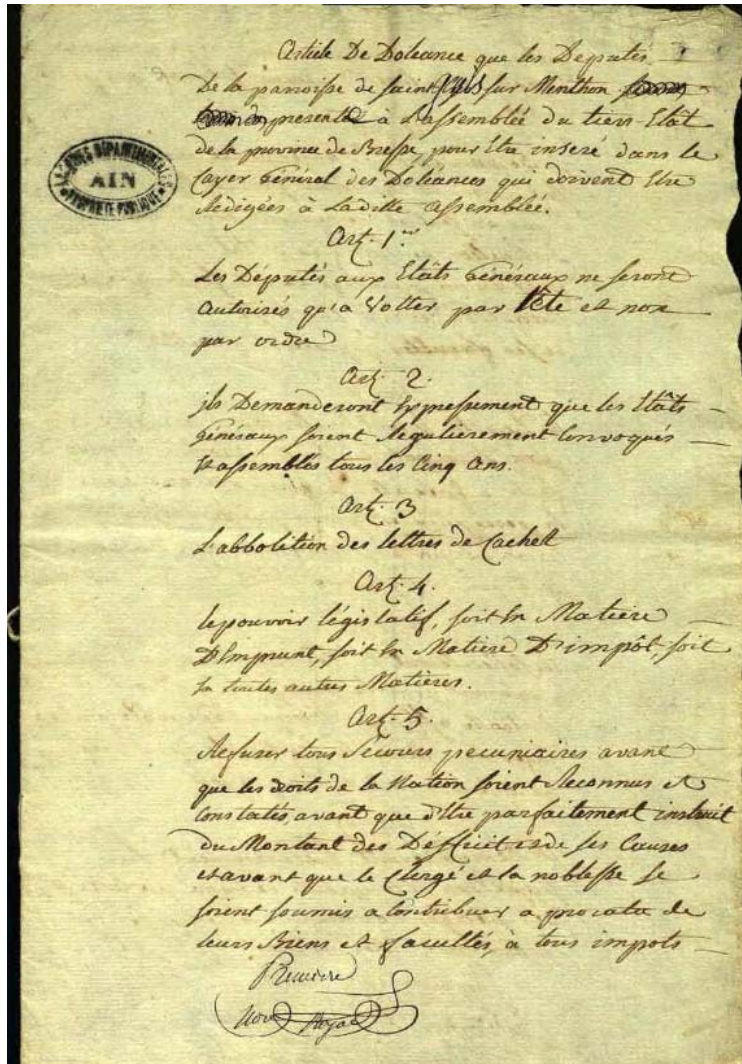 Article De Doleance que les Députés
De la parroisse de saint Cyr sur Menthon
presenté à L'assemblée du tiers-Etat
de la province de Bresse, pour Etre inseré dans le
Cayer Général des Doléances qui doivent Etre
Redigées à Laditte assemblée.
ARCHIVES DÉPARTEMENTALES
AIN
PROPRIÉTÉ PUBLIQUE
Art. 1er
Les Députés aux Etâts Généraux ne seront
Autorisés qu'a Votter par tête et non
par ordre
Art. 2.
jls Demanderont Expressement que les Etâts
Généraux soient Régulierement Convoqués
Et assemblés tous les Cinq Ans.
Art. 3
L'abbolition des lettres de Cachett
Art. 4.
le pouvoir législatif, soit En Matiere
D'Emprunt, soit En Matiere D'impôt, soit
En toutes autres Matieres.
Art. 5.
Refuser tous Secours pecuniaires avant
que les droits de la Nation soient Reconnus et
Constatés, avant que d'Etre parfaitement instruit
Du Montant des Défficit et de ses Causes
et avant que le Clergé et la noblesse se
soient soumis a Contribuer a procata de
leurs Biens et facultés, à tous impots
Premiere